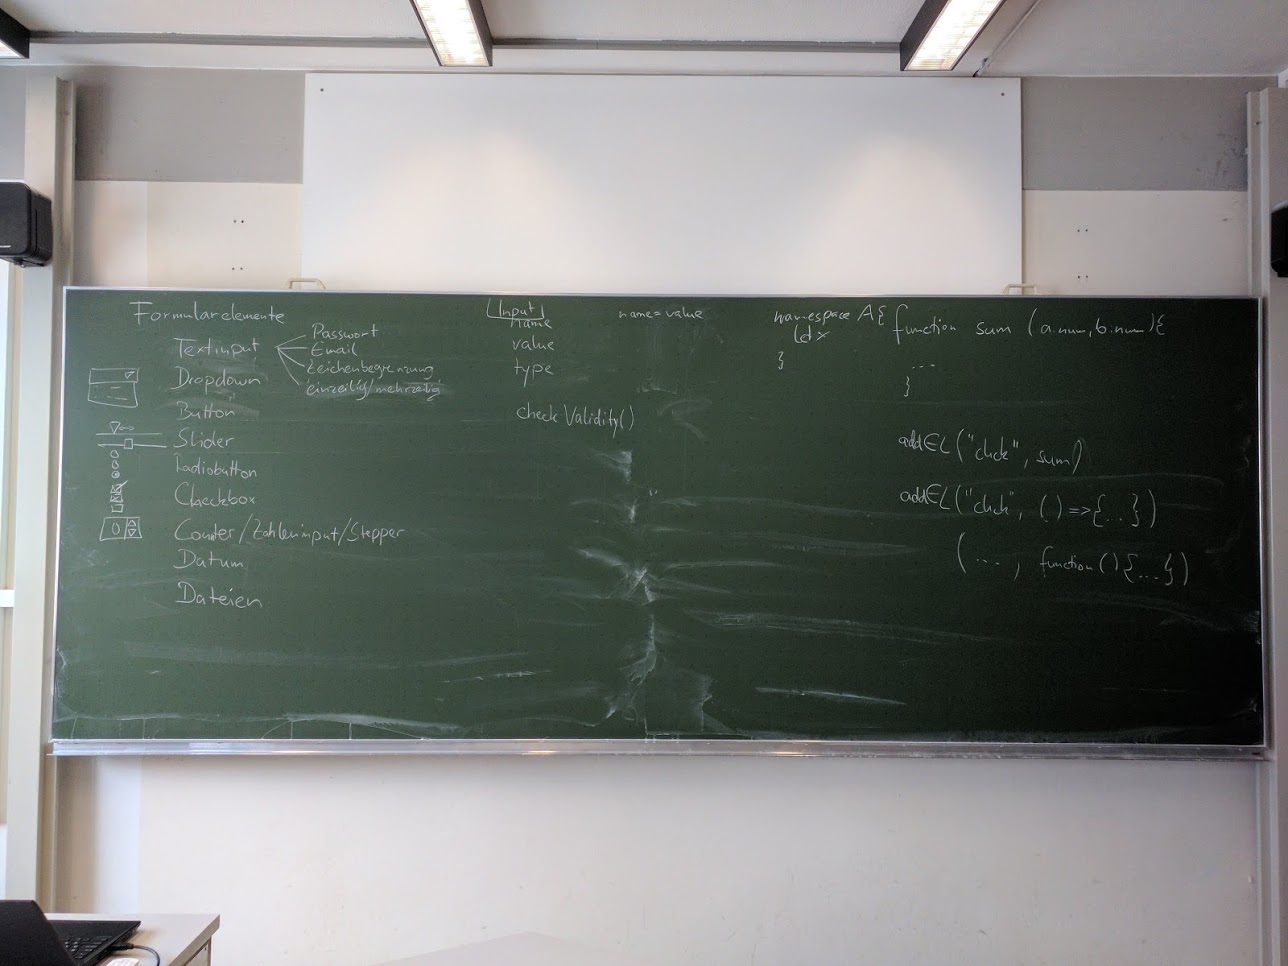 Formularelemente
Textinput
Passwort
Email
Zeichenbegrenzung
einzeilig/mehrzeilig
Dropdown
Button
Slider
Radiobutton
Checkbox
0
Counter/Zahleninput/Stepper
Datum
Dateien
Input
name
value
type
checkValidity()
name=value
namespace A{
}
function sum (a:num, b:num){
...
}
addEL("click", sum)
addEL("click", () => {...})
(..., function(){...})